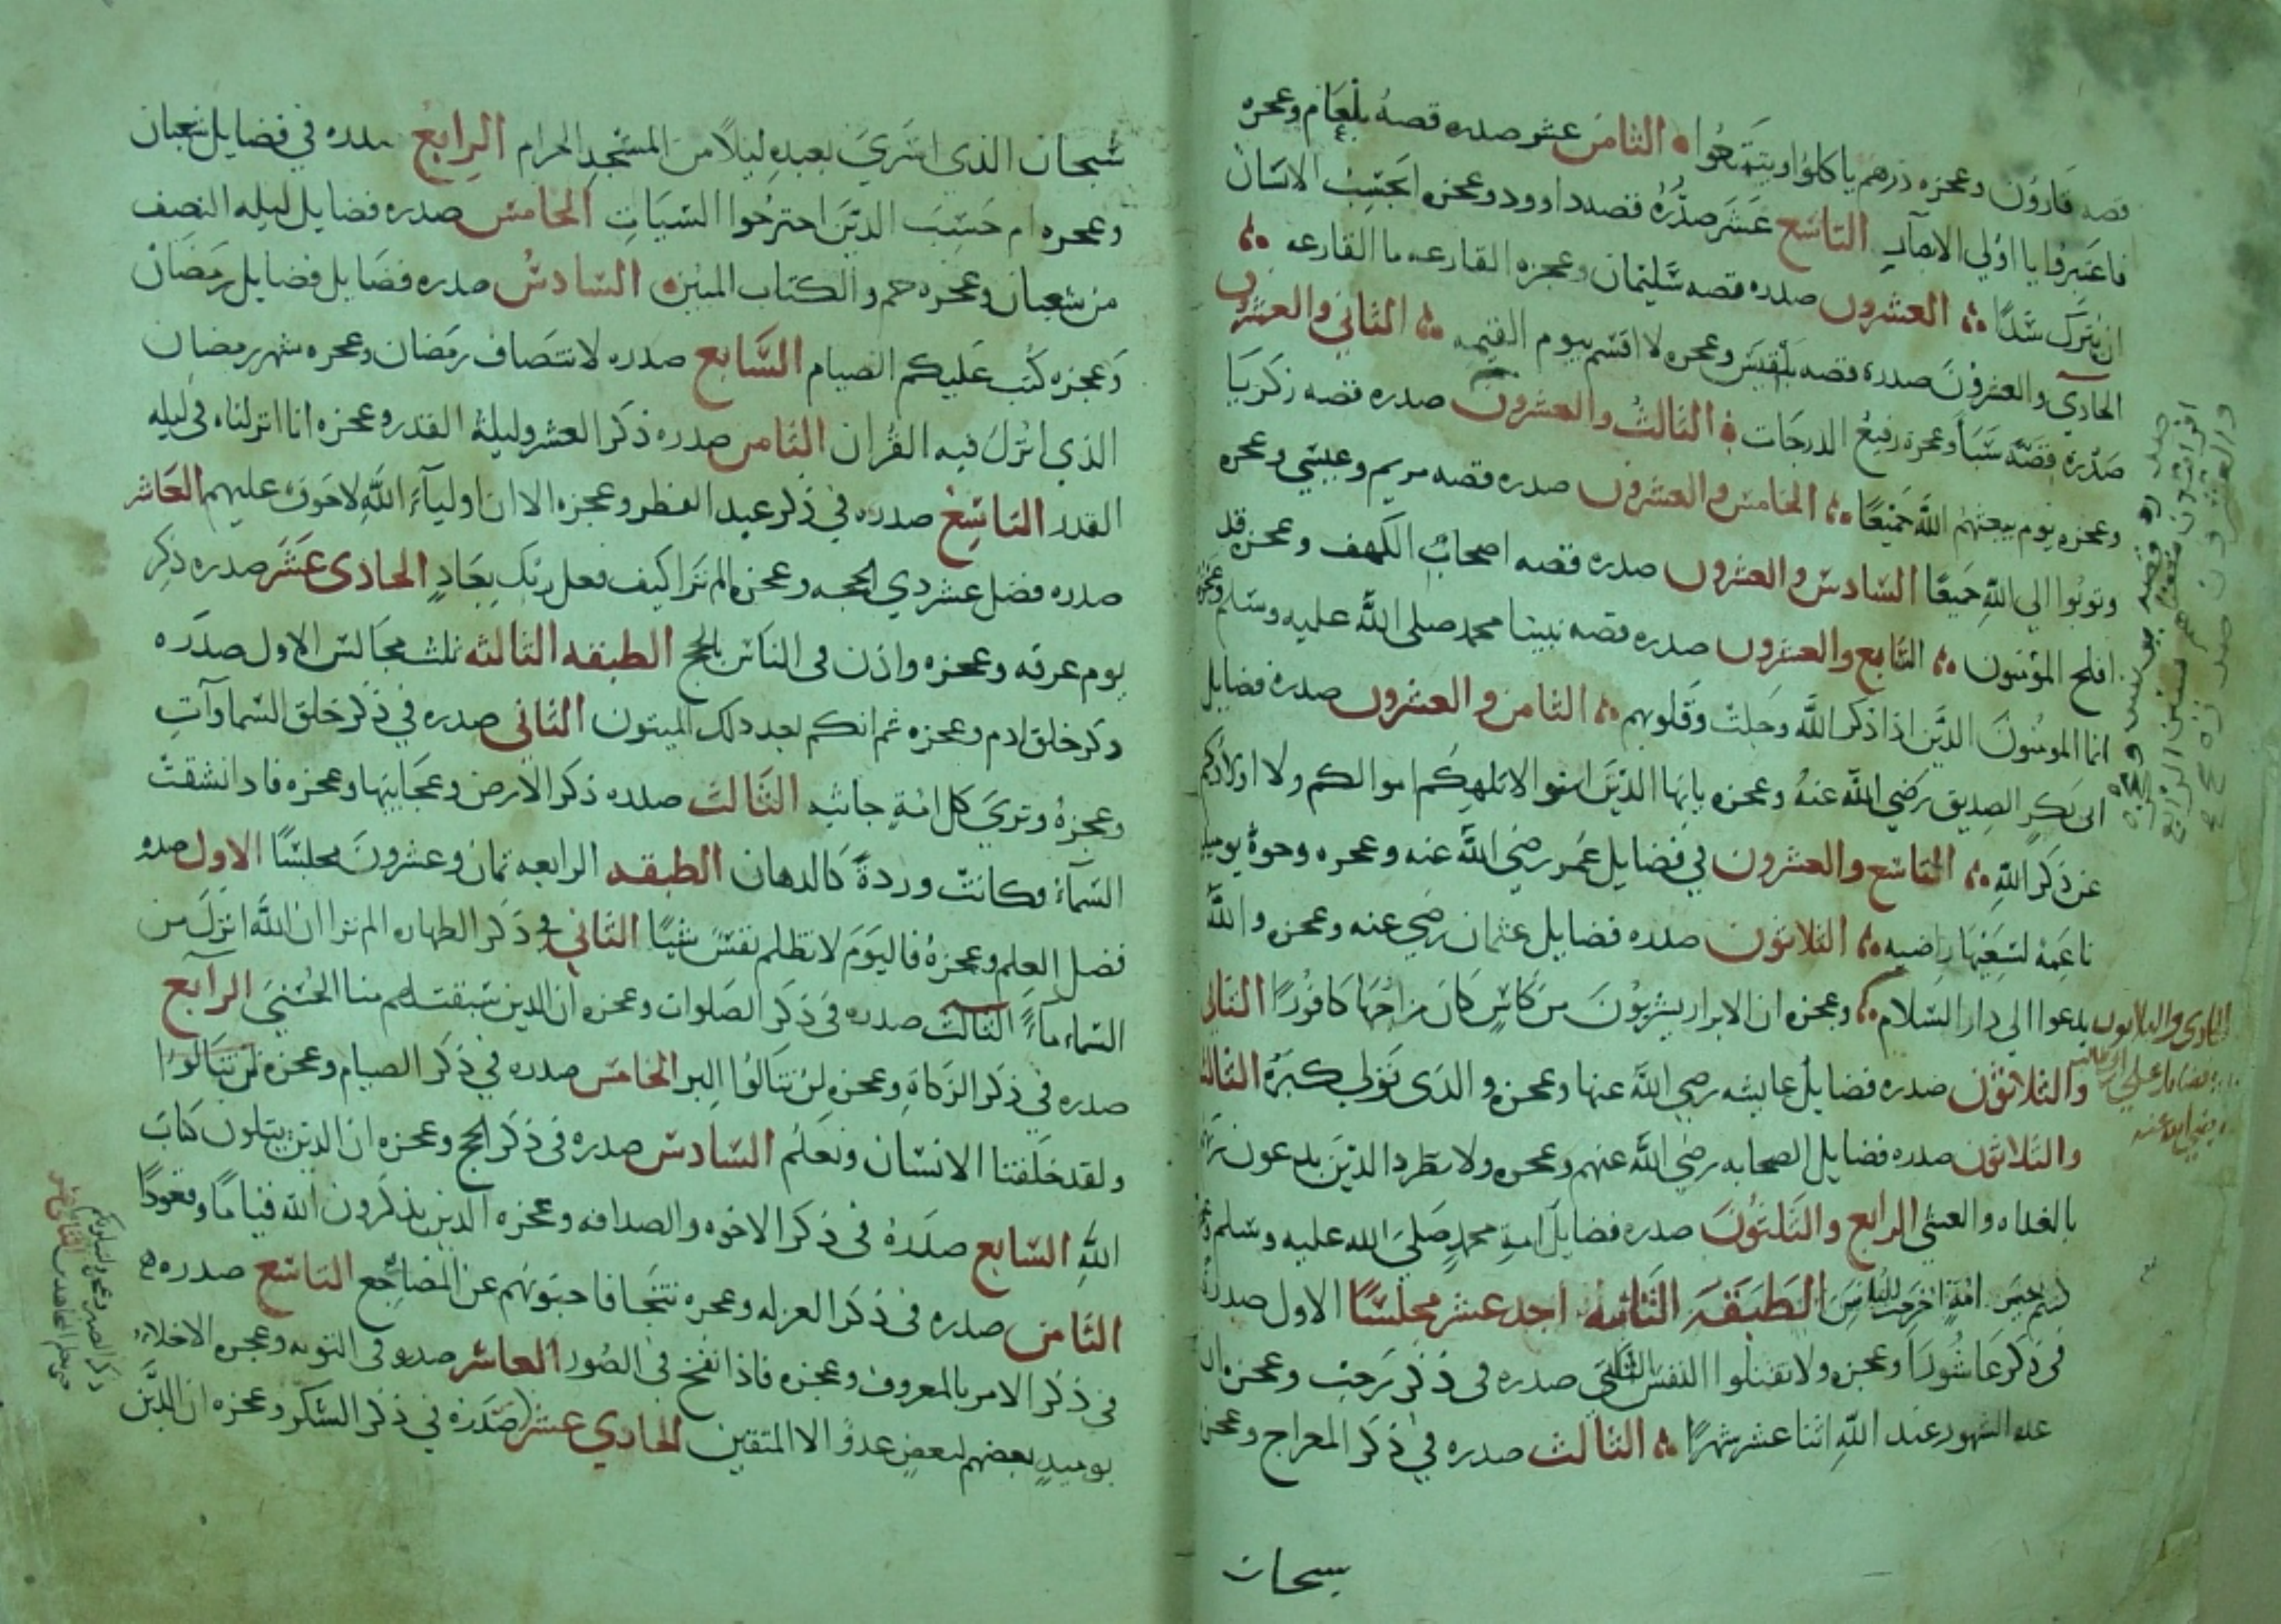 قصه قارون وعجزه ذرهم ياكلوا ويتمتعوا الثامن عشر صدره قصه بلعام وعجزه
فاعتبروا يا اولي الابصار التاسع عشر صدره قصه داوود وعجزه ايحسب الانسان
ان يترك سدا العشرون صدره قصه سليمان وعجزه القارعه ما القارعه
الحادي والعشرون صدره قصه بلقيس وعجزه لا اقسم بيوم القيمه الثاني والعشرون
صدره قصة سبأ وعجزه رفيع الدرجات الثالث والعشرون صدره قصه زكريا
وعجزه يوم يبعثهم الله جميعا الخامس والعشرون صدره قصه مريم وعيسى وعجزه
وتوبوا الي الله جميعا السادس والعشرون صدره قصه اصحاب الكهف وعجزه قد
افلح المؤمنون السابع والعشرون صدره قصه نبينا محمد صلى الله عليه وسلم وعجزه
انما المومنون الذين اذا ذكر الله وجلت وقلوبهم الثامن والعشرون صدره فضايل
ابى بكر الصديق رضي الله عنه وعجزه يايها الذين امنوا لاتلهكم اموالكم ولا اولادكم
عن ذكر الله التاسع والعشرون في فضايل عمر رضي الله عنه وعجزه وجوه يوميذ
ناعمة لسعيها راضيه الثلاثون صدره فضايل عثمان رضي عنه وعجزه والله
يدعوا الي دار السلام وعجزه ان الابرار يشربون من كاس كان مزاجها كافورا الثاني
والثلاثون صدره فضايل عايشه رضي الله عنها وعجزه والذى تولي كبره الثالث
والثلاثون صدره فضايل الصحابه رضي الله عنهم وعجزه ولا تطرد الذين يدعون ربهم
بالغداه والعشي الرابع والثلثون صدره فضايل امة محمد صلى الله عليه وسلم وعجزه
كنتم خير امة اخرجت للناس الطبقة الثانيه احد عشر مجلسا الاول صدره
فى ذكر عاشورا وعجزه ولا تقتلوا النفس الثاني صدره فى ذكر رجب وعجزه ان
عده الشهور عند الله اثنا عشر شهرا الثالث صدره في ذكر المعراج وعجزه
سبحان
الحادى والثلاثون
صدره فضايل علي ابن ابي طالب
رضي الله عنه
سبحان الذي اسري بعبده ليلا من المسجد الحرام الرابع صدره في فضايل شعبان
وعجزه ام حسب الذين اجترحوا السيات الخامس صدره فضايل ليله النصف
من شعبان وعجزه حم والكتاب المبين السادس صدره فضايل فضايل رمضان
وعجزه كتب عليكم الصيام السابع صدره لانتصاف رمضان وعجزه شهر رمضان
الذي انزل فيه القران الثامن صدره ذكر العشر وليلة القدر وعجزه انا انزلناه فى ليله
القدر التاسع صدره في ذكر عيد الفطر وعجزه الا ان اوليآء الله لاخوف عليهم العاشر
صدره فضل عشر ذي الحجه وعجزه الم ترا كيف فعل ربك بعاد الحادى عشر صدره ذكر
يوم عرفه وعجزه واذن فى الناس بالحج الطبقه الثالثه ثلث مجالس الاول صدره
ذكر خلق ادم وعجزه ثم انكم بعد ذلك لميتون الثاني صدره في ذكر خلق السماوآت
وعجزه وتري كل امة جاثيه الثالث صدره ذكر الارض وعجايبها وعجزه فاذا انشقت
السمآء فكانت وردة كالدهان الطبقه الرابعه ثمان وعشرون مجلسا الاول صدره
فضل العلم وعجزه فاليوم لا تظلم نفس شيا الثاني في ذكر الطهاره الم ترا ان الله انزل من
السماء مآء الثالث صدره فى ذكر الصلوات وعجزه ان الذين سبقت لهم منا الحسنى الرابع
صدره في ذكر الزكاة وعجزه لن تنالوا البر الخامس صدره في ذكر الصيام وعجزه لن تنالوا
ولقد خلقنا الانسان ونعلم السادس صدره فى ذكر الحج وعجزه ان الذين يتلون كتاب
الله السابع صدره فى ذكر الاخوه والصداقه وعجزه الذين يذكرون الله قياما وقعودا
الثامن صدره فى ذكر العزله وعجزه تتجافا جنوبهم عن المضاجع التاسع صدره
في ذكر الامر بالمعروف وعجزه فاذا نفخ فى الصور العاشر صدره فى التوبه وعجزه الاخلاء
يوميذ بعضهم لبعض عدو الا المتقين الحادي عشر صدره في ذكر الشكر وعجزه ان الذين